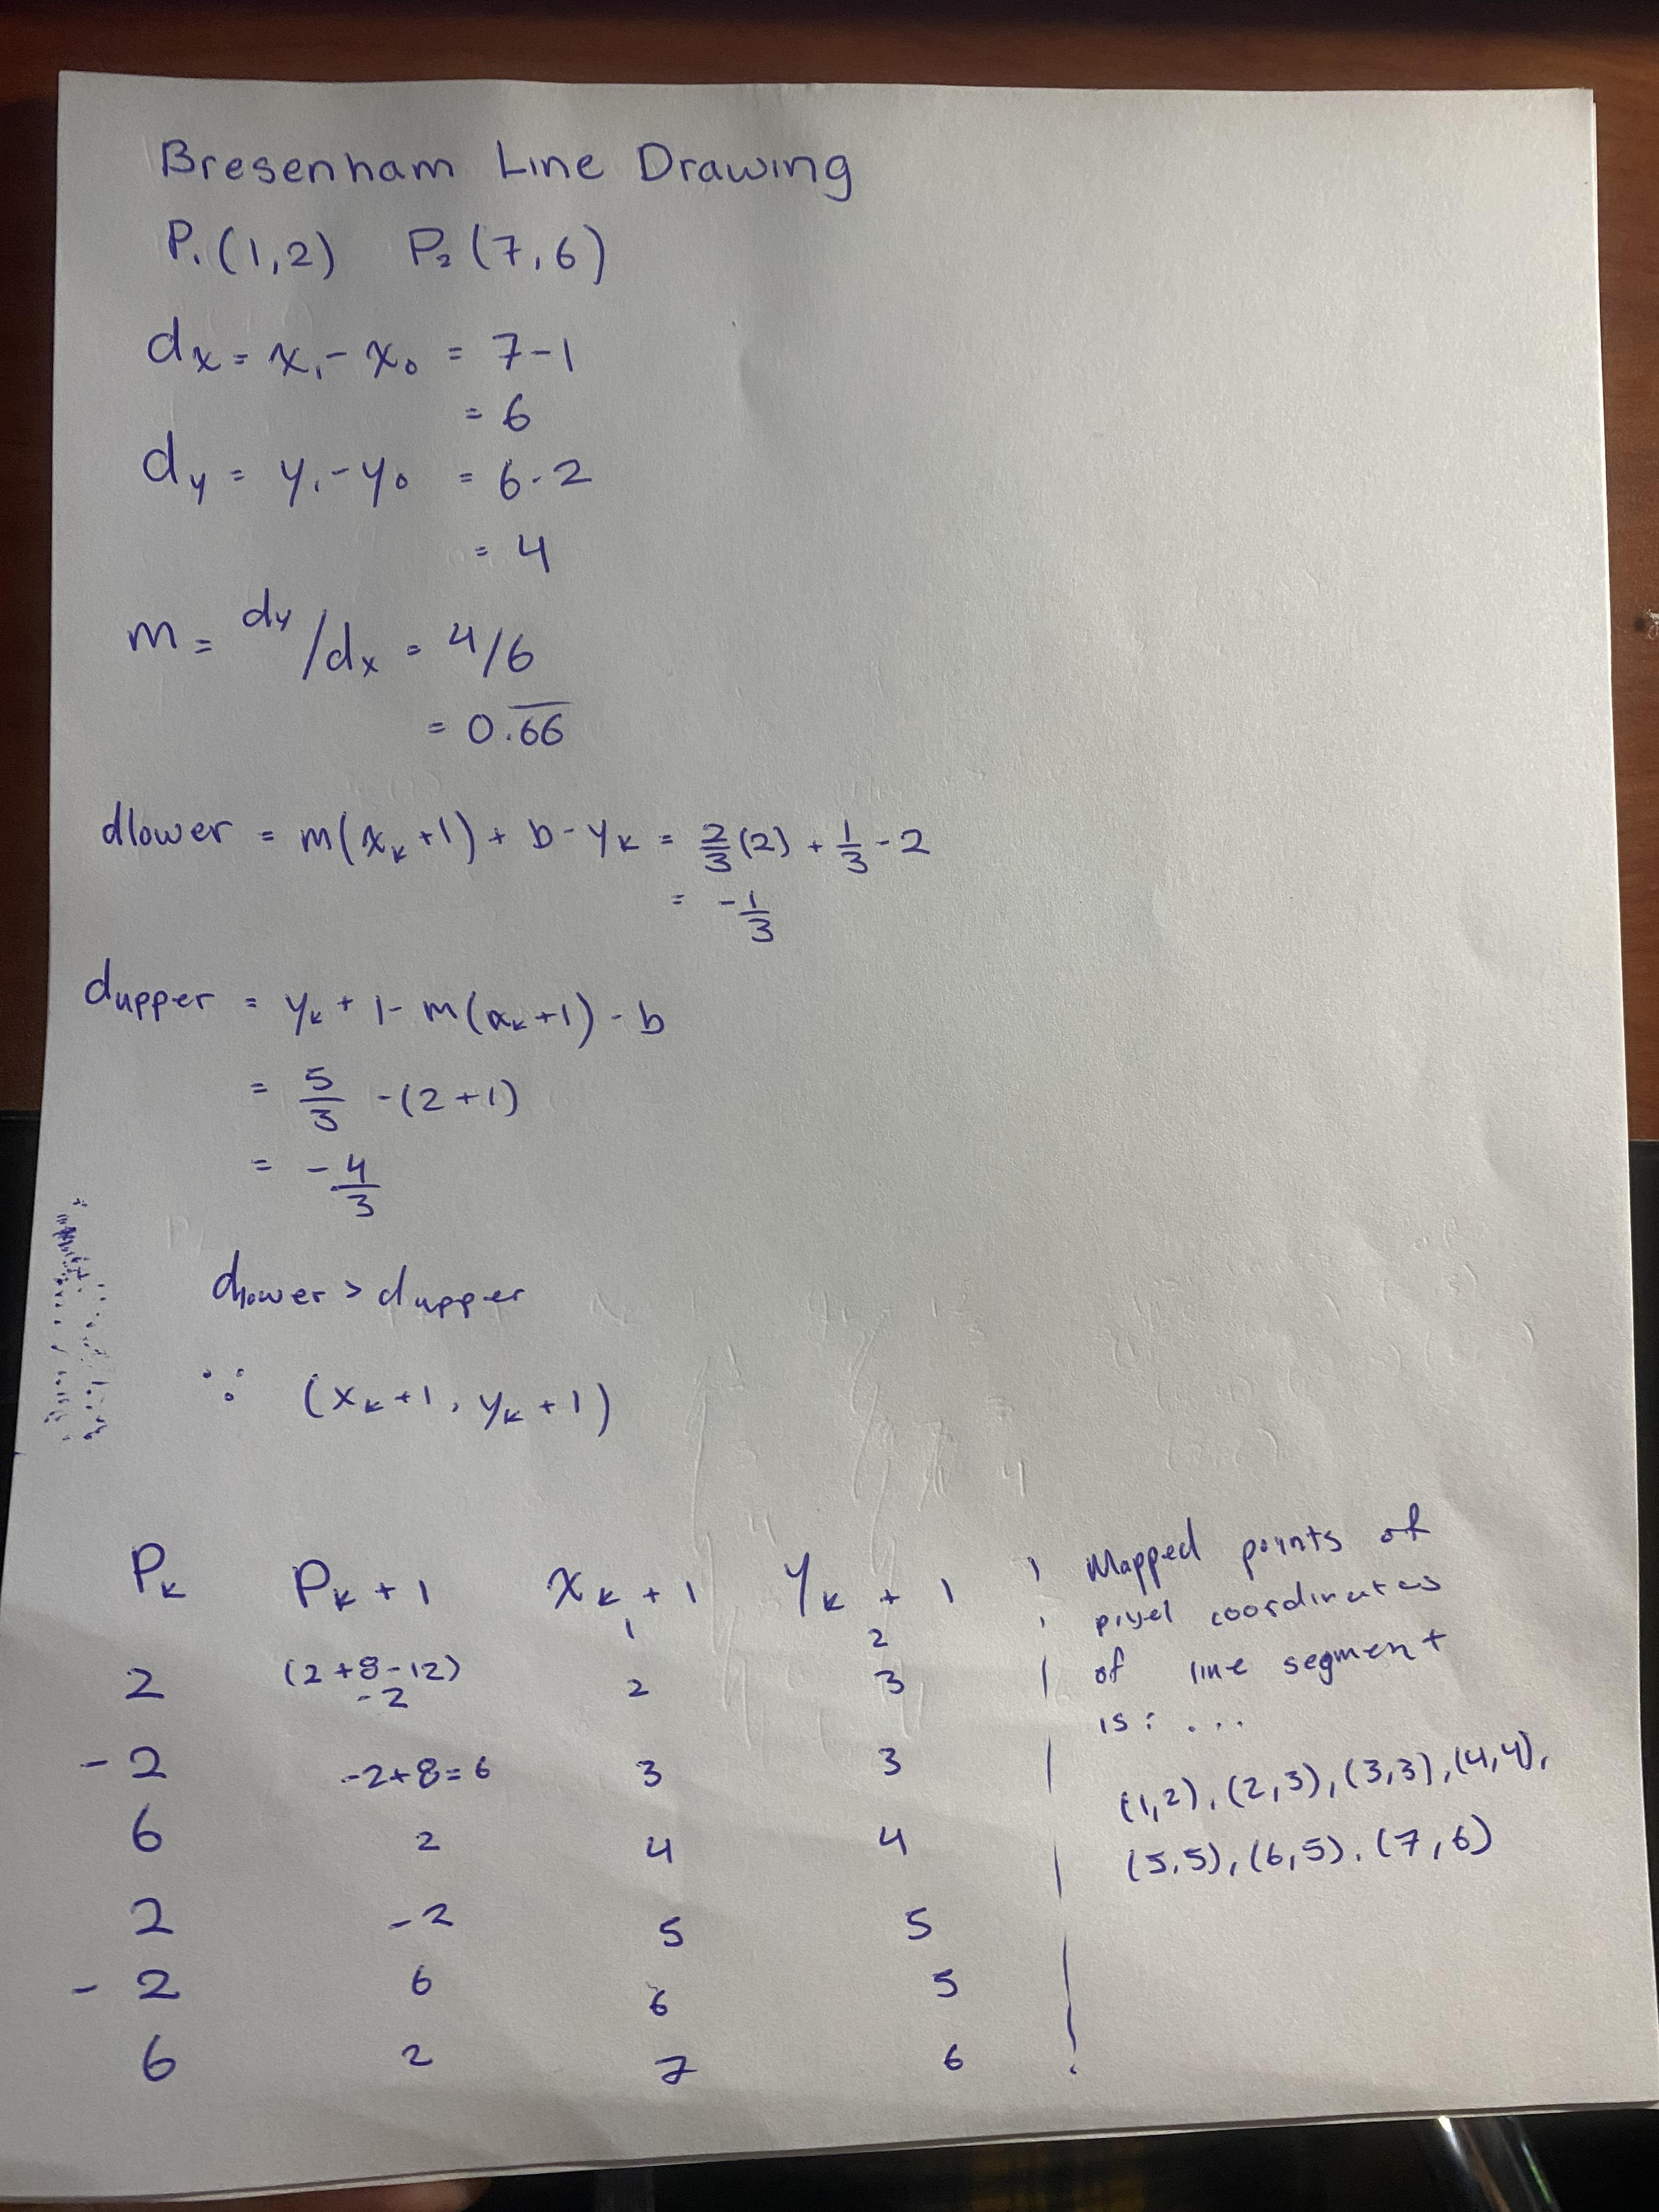 Bresenham Line Drawing
P₁(1,2) P₂(7,6)
dx = x₁ - x₀ = 7-1
= 6
dy = y₁ - y₀ = 6-2
= 4
m = dy/dx = 4/6
= 0.6̅6̅
dlower = m(xₖ+1) + b - yₖ = 2/3(2) + 1/3 - 2
= -1/3
dupper = yₖ + 1 - m(xₖ+1) - b
= 5/3 - (2+1)
= -4/3
dlower > dupper
∵ (xₖ+1, yₖ+1)
Pₖ Pₖ+1 xₖ+1 yₖ+1
1 2
2 (2+8-12) 2 3
-2
-2 -2+8=6 3 3
6 2 4 4
2 -2 5 5
-2 6 6 5
6 2 7 6
Mapped points of
pixel coordinates
of line segment
is: ...
(1,2), (2,3), (3,3), (4,4),
(5,5), (6,5), (7,6)